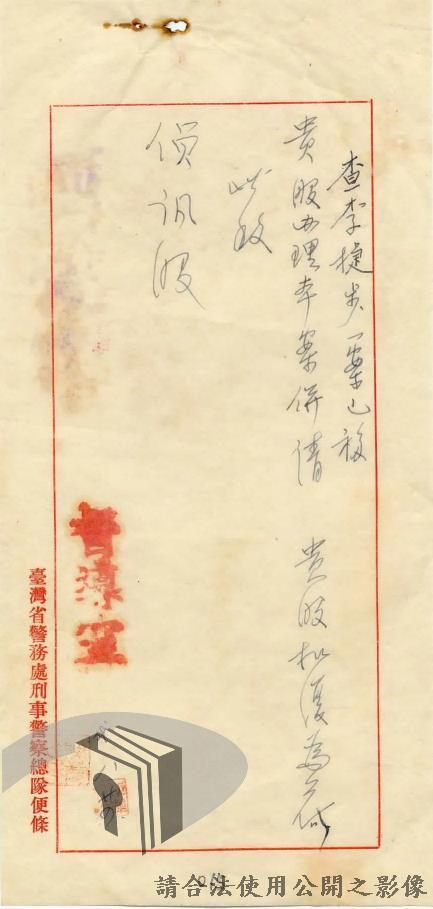 查李捷步一案已移
貴股办理本案併請 貴股批復為荷
此致
偵訊股
督導室
臺灣省警務處刑事警察總隊便條
請合法使用公開之影像